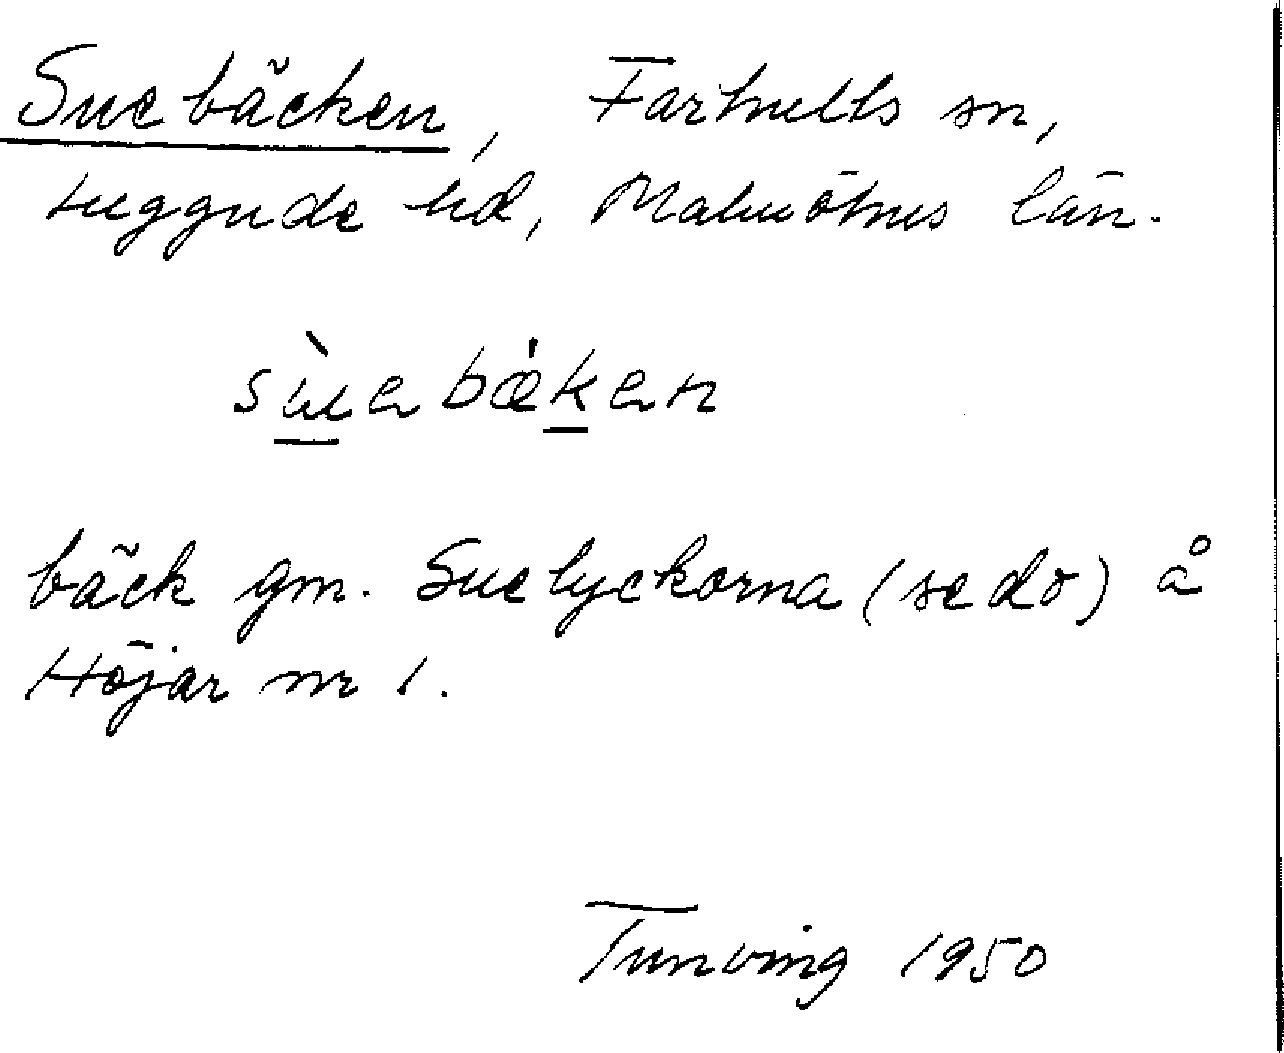 Suebäcken, Farhults sn,
Luggude hd, Malmöhus län.
sùebǽken
bäck gm. Suelyckorna (se do) å
Höjar nr 1.
Tunving 1950